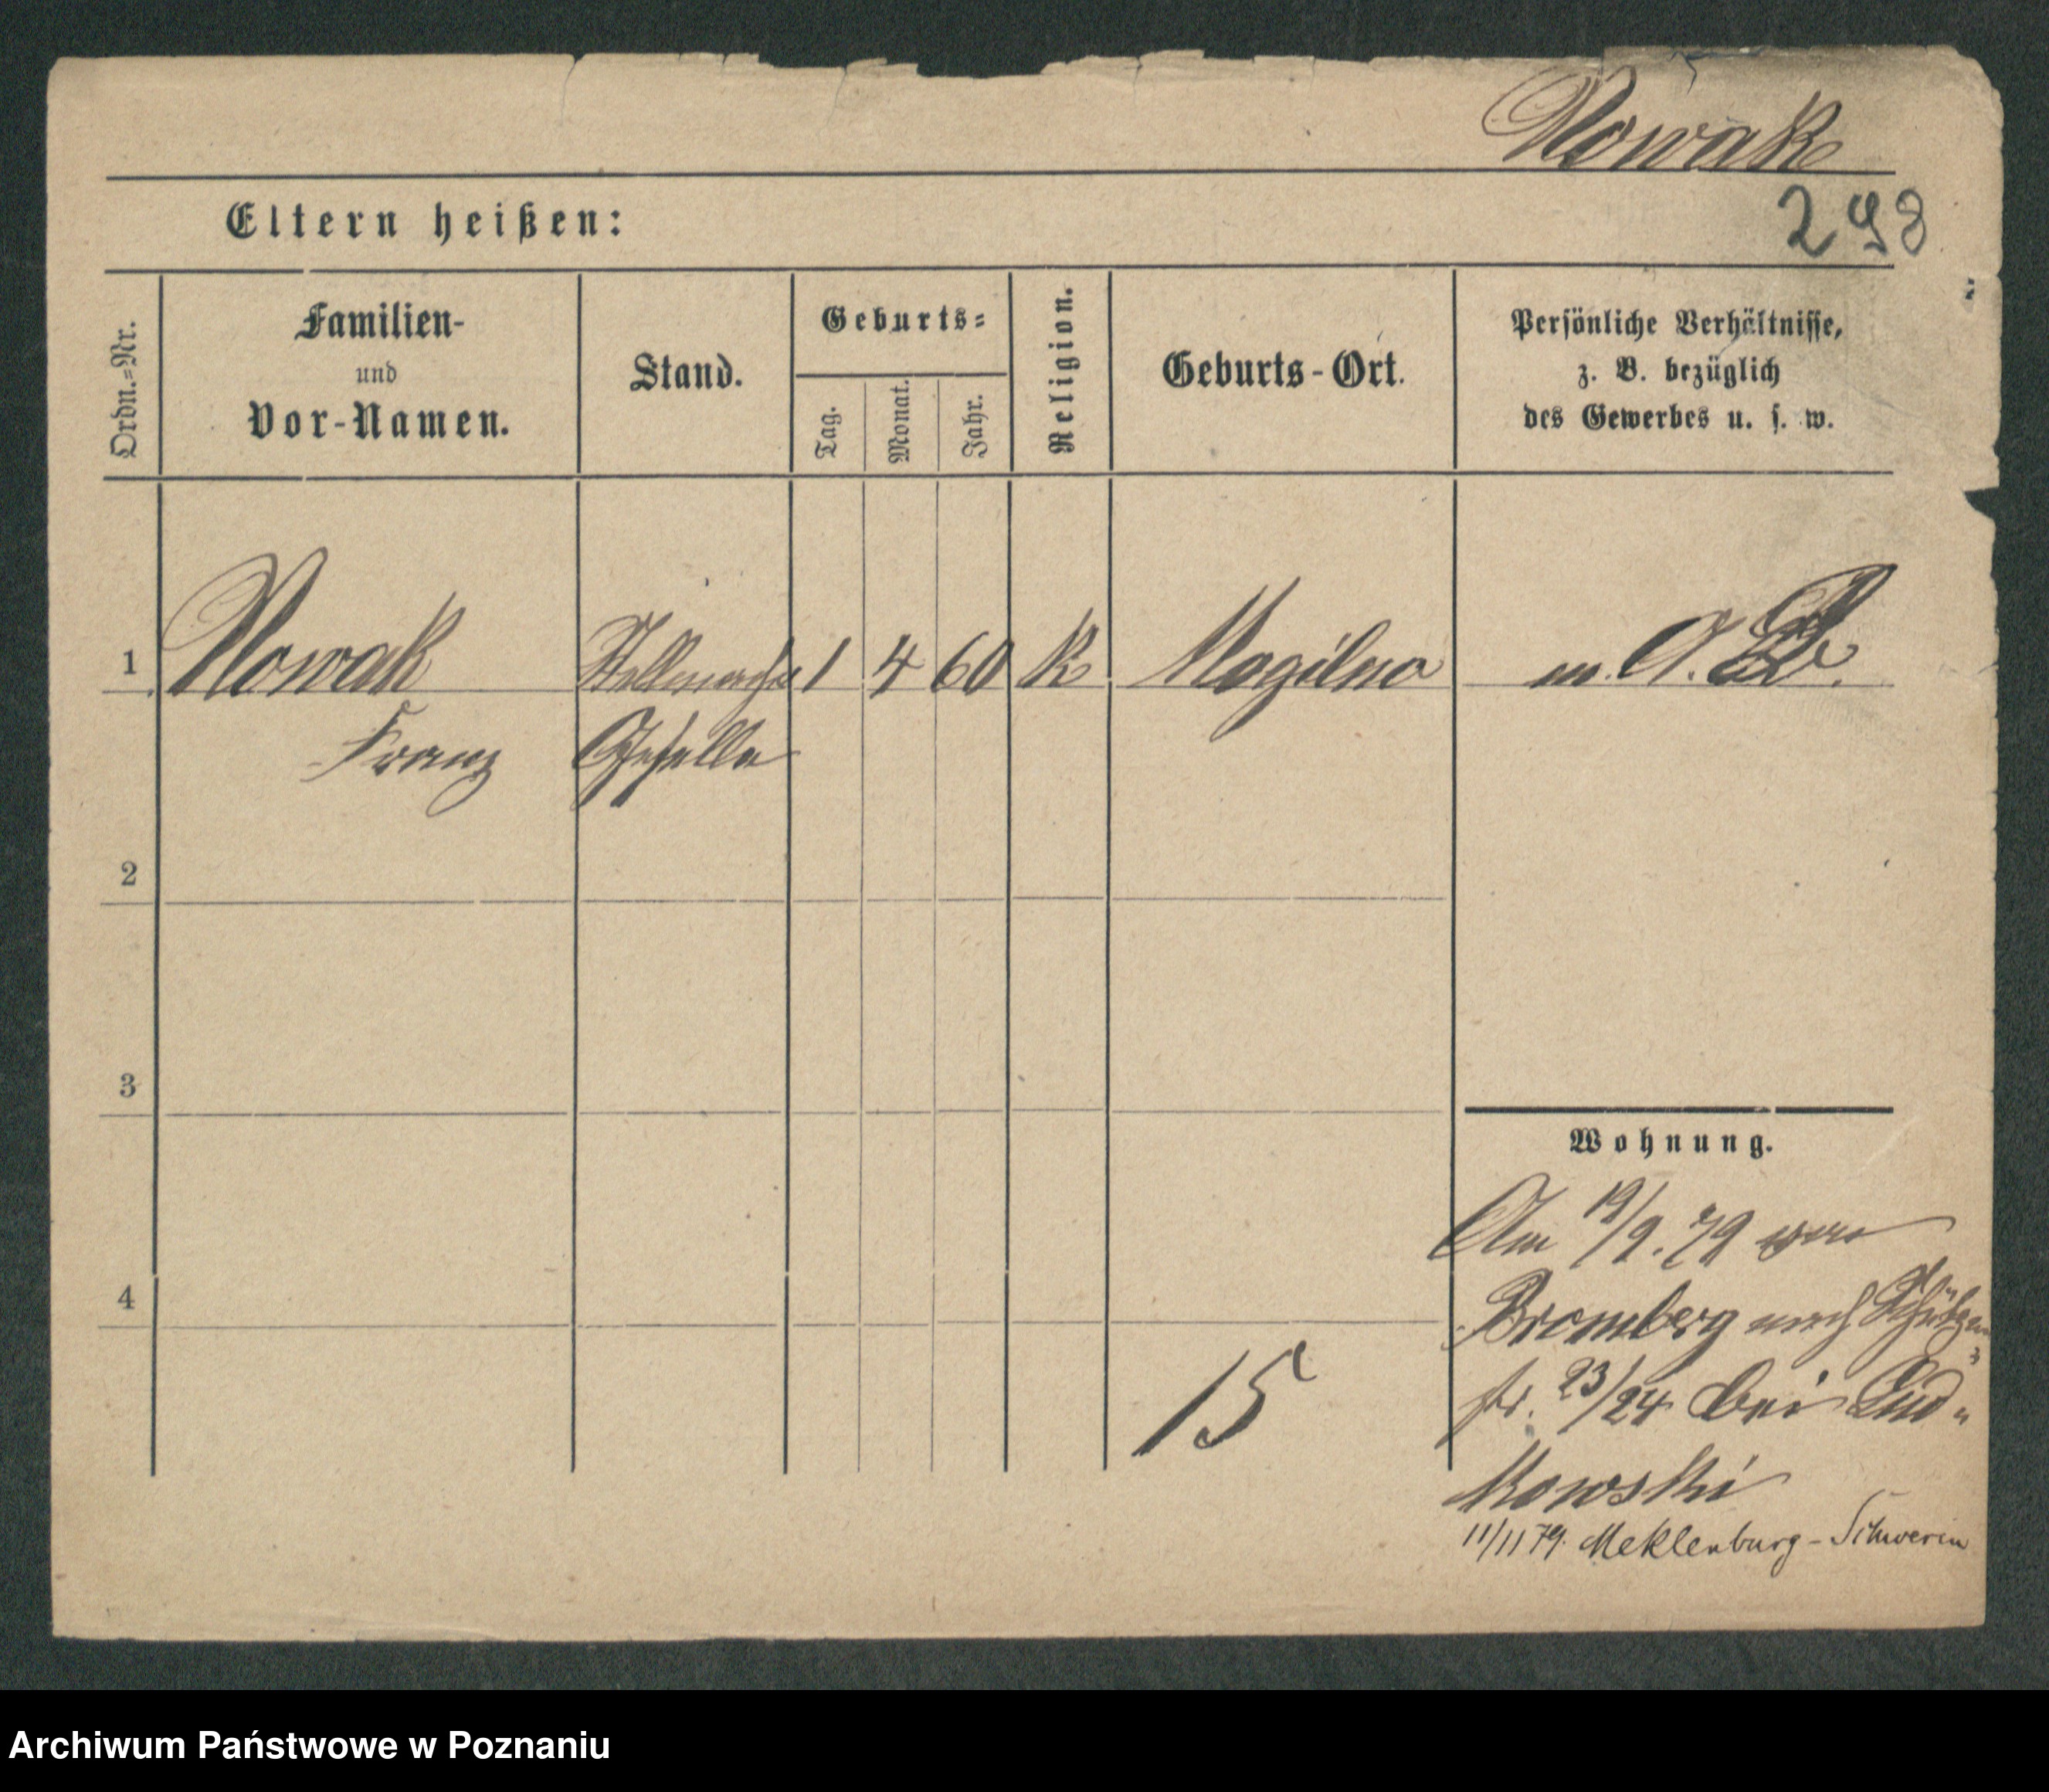 Nowak
298
Eltern heißen:
Ordn.=Nr.
Familien-
und
Vor-Namen.
Stand.
Geburts=
Tag.
Monat.
Jahr.
Religion.
Geburts-Ort.
Persönliche Verhältnisse,
z. B. bezüglich
des Gewerbes u. s. w.
1 Nowak Stellmacher 1 4 60 K Mogilno m. A.
Franz Geselle
2
3
Wohnung.
Am 19/9. 79 von
4
Bromberg nach Schützen
str. 23/24 bei Lud„
kowski
15
11/11 79. Meklenburg-Schwerin
Archiwum Państwowe w Poznaniu